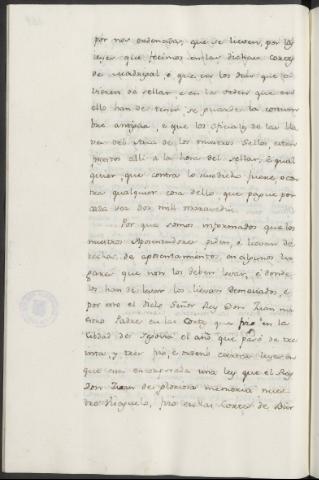 por nos ordenadas, que se lieven, por las
leyes que fecimos en las dichas Cortes
de Madrigal é que con los dias que
hobieren de sellar, e en la orden que en
ello han de tener se guarde la costum
bre antigua, é que los oficiales de las lla
ves del Arca de los nuestros Sellos, esten
prestos alli á la hora del sellar, é qual
quier, que contra lo susodicho fuere, ó con
tra qualquier cosa dello, que pague por
cada vez dos mill maravedis
Por que somos informados que los
nuestros Aposentadores piden, é lievan de
rechos de aposentamiento, en algunos lu
gares que non los deben levar, é donde
los han de levar los lievan demasiados, é
por que el dicho Señor Rey Don Juan nu
estro Padre en las Cortes que fizo en la
Cibdad de Segovia el año que pasó de tre
inta, y tres fizo, é ordenó ciertas leyes en
que está encorporada una ley que el Rey
Don Juan de gloriosa memoria nues
tro Visaguelo, fizo en las Cortes de Bir